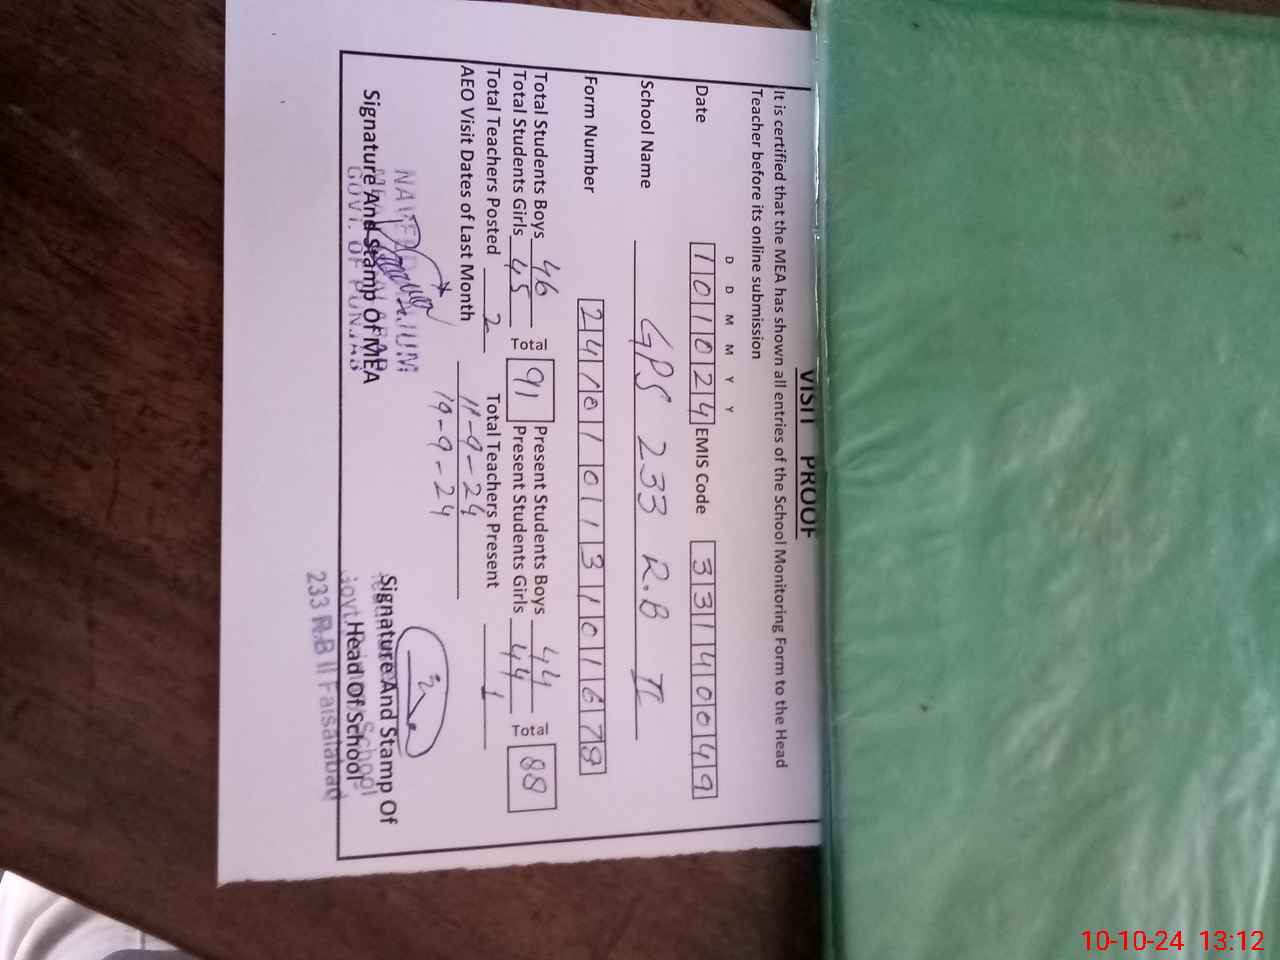 VISIT PROOF
It is certified that the MEA has shown all entries of the School Monitoring Form to the Head
Teacher before its online submission
D D M M Y Y
Date 101024 EMIS Code 33140049
School Name GPS 233 R.B II
Form Number 241010113101679
Total Students Boys 46 Present Students Boys 44
Total Students Girls 45 Total 91 Present Students Girls 44 Total 88
Total Teachers Posted 2 Total Teachers Present 1
AEO Visit Dates of Last Month 11-9-24
19-9-24
Signature And Stamp Of MEA
GOVT. OF PUNJAB
Signature And Stamp Of
Head Of School
233 R.B II Faisalabad
10-10-24 13:12